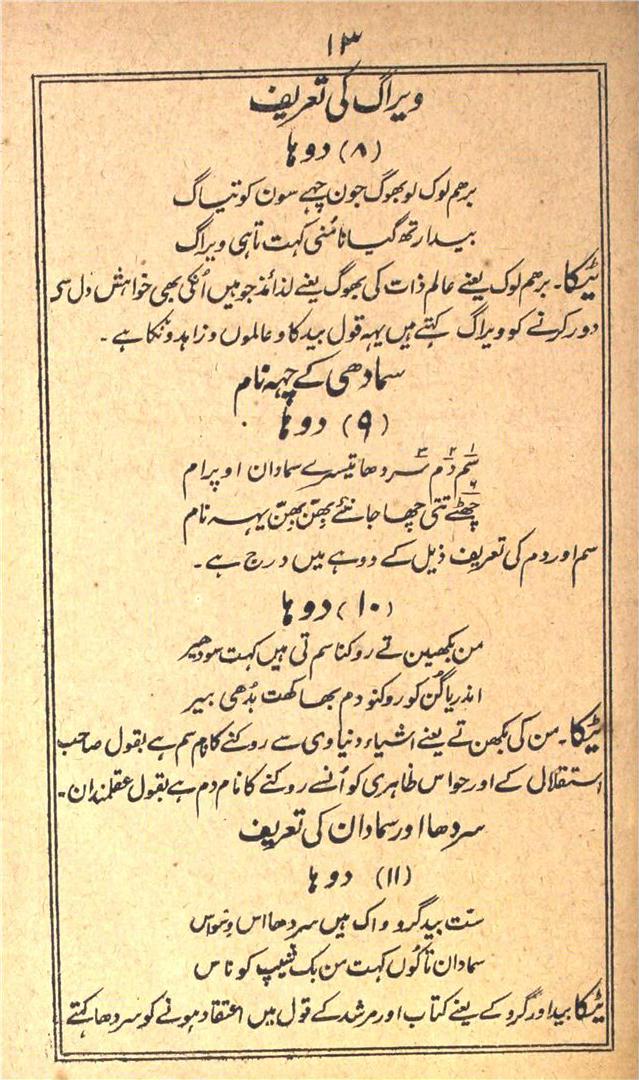 ۱۳
ویراگ کی تعریف
(۸) دوہا
برھم لوک لو بھوگ جون چہے سون کو تیاگ
بیدارتھ گیاتا مُنی کہت تاہی ویراگ
ٹیکا۔ برھم لوک یعنے عالم ذات کی بھوگ یعنے لذائذ جو ہیں اُنکی بھی خواہش دل سی
دور کرنے کو ویراگ کہتے ہیں یہہ قول بید کا و عالموں و زاہدونکا ہے۔
سمادھی کے چہہ نام
(۹) دوہا
سم دم سردھا تیسرے سمادان اوپرام
چھٹے تتی چھا جانئے بھِن بھِن یہہ نام
سم اور دم کی تعریف ذیل کے دوہے میں درج ہے۔
(۱۰) دوہا
من بکھین تے روکنا سم تی ہیں کہت سودھیر
اندریا گن کو روکنو دم بھاکھت بُدھی بیر
ٹیکا۔ من کی بکھن تے یعنے اشیاء دنیاوی سے روکنے کا نام سم ہے بقول صاحب
استقلال کے اور حواس ظاہری کو اُنسے روکنے کا نام دم ہے بقول عقلمندان۔
سردھا اور سمادان کی تعریف
(۱۱) دوہا
ست بید گرو واک ہیں سردھا اس وِشواس
سمادان تا کوں کہت من بک کو ناس
ٹیکا بید اور گرو کے یعنے کتاب اور مرشد کے قول میں اعتقاد ہونے کو سردھا کہتے